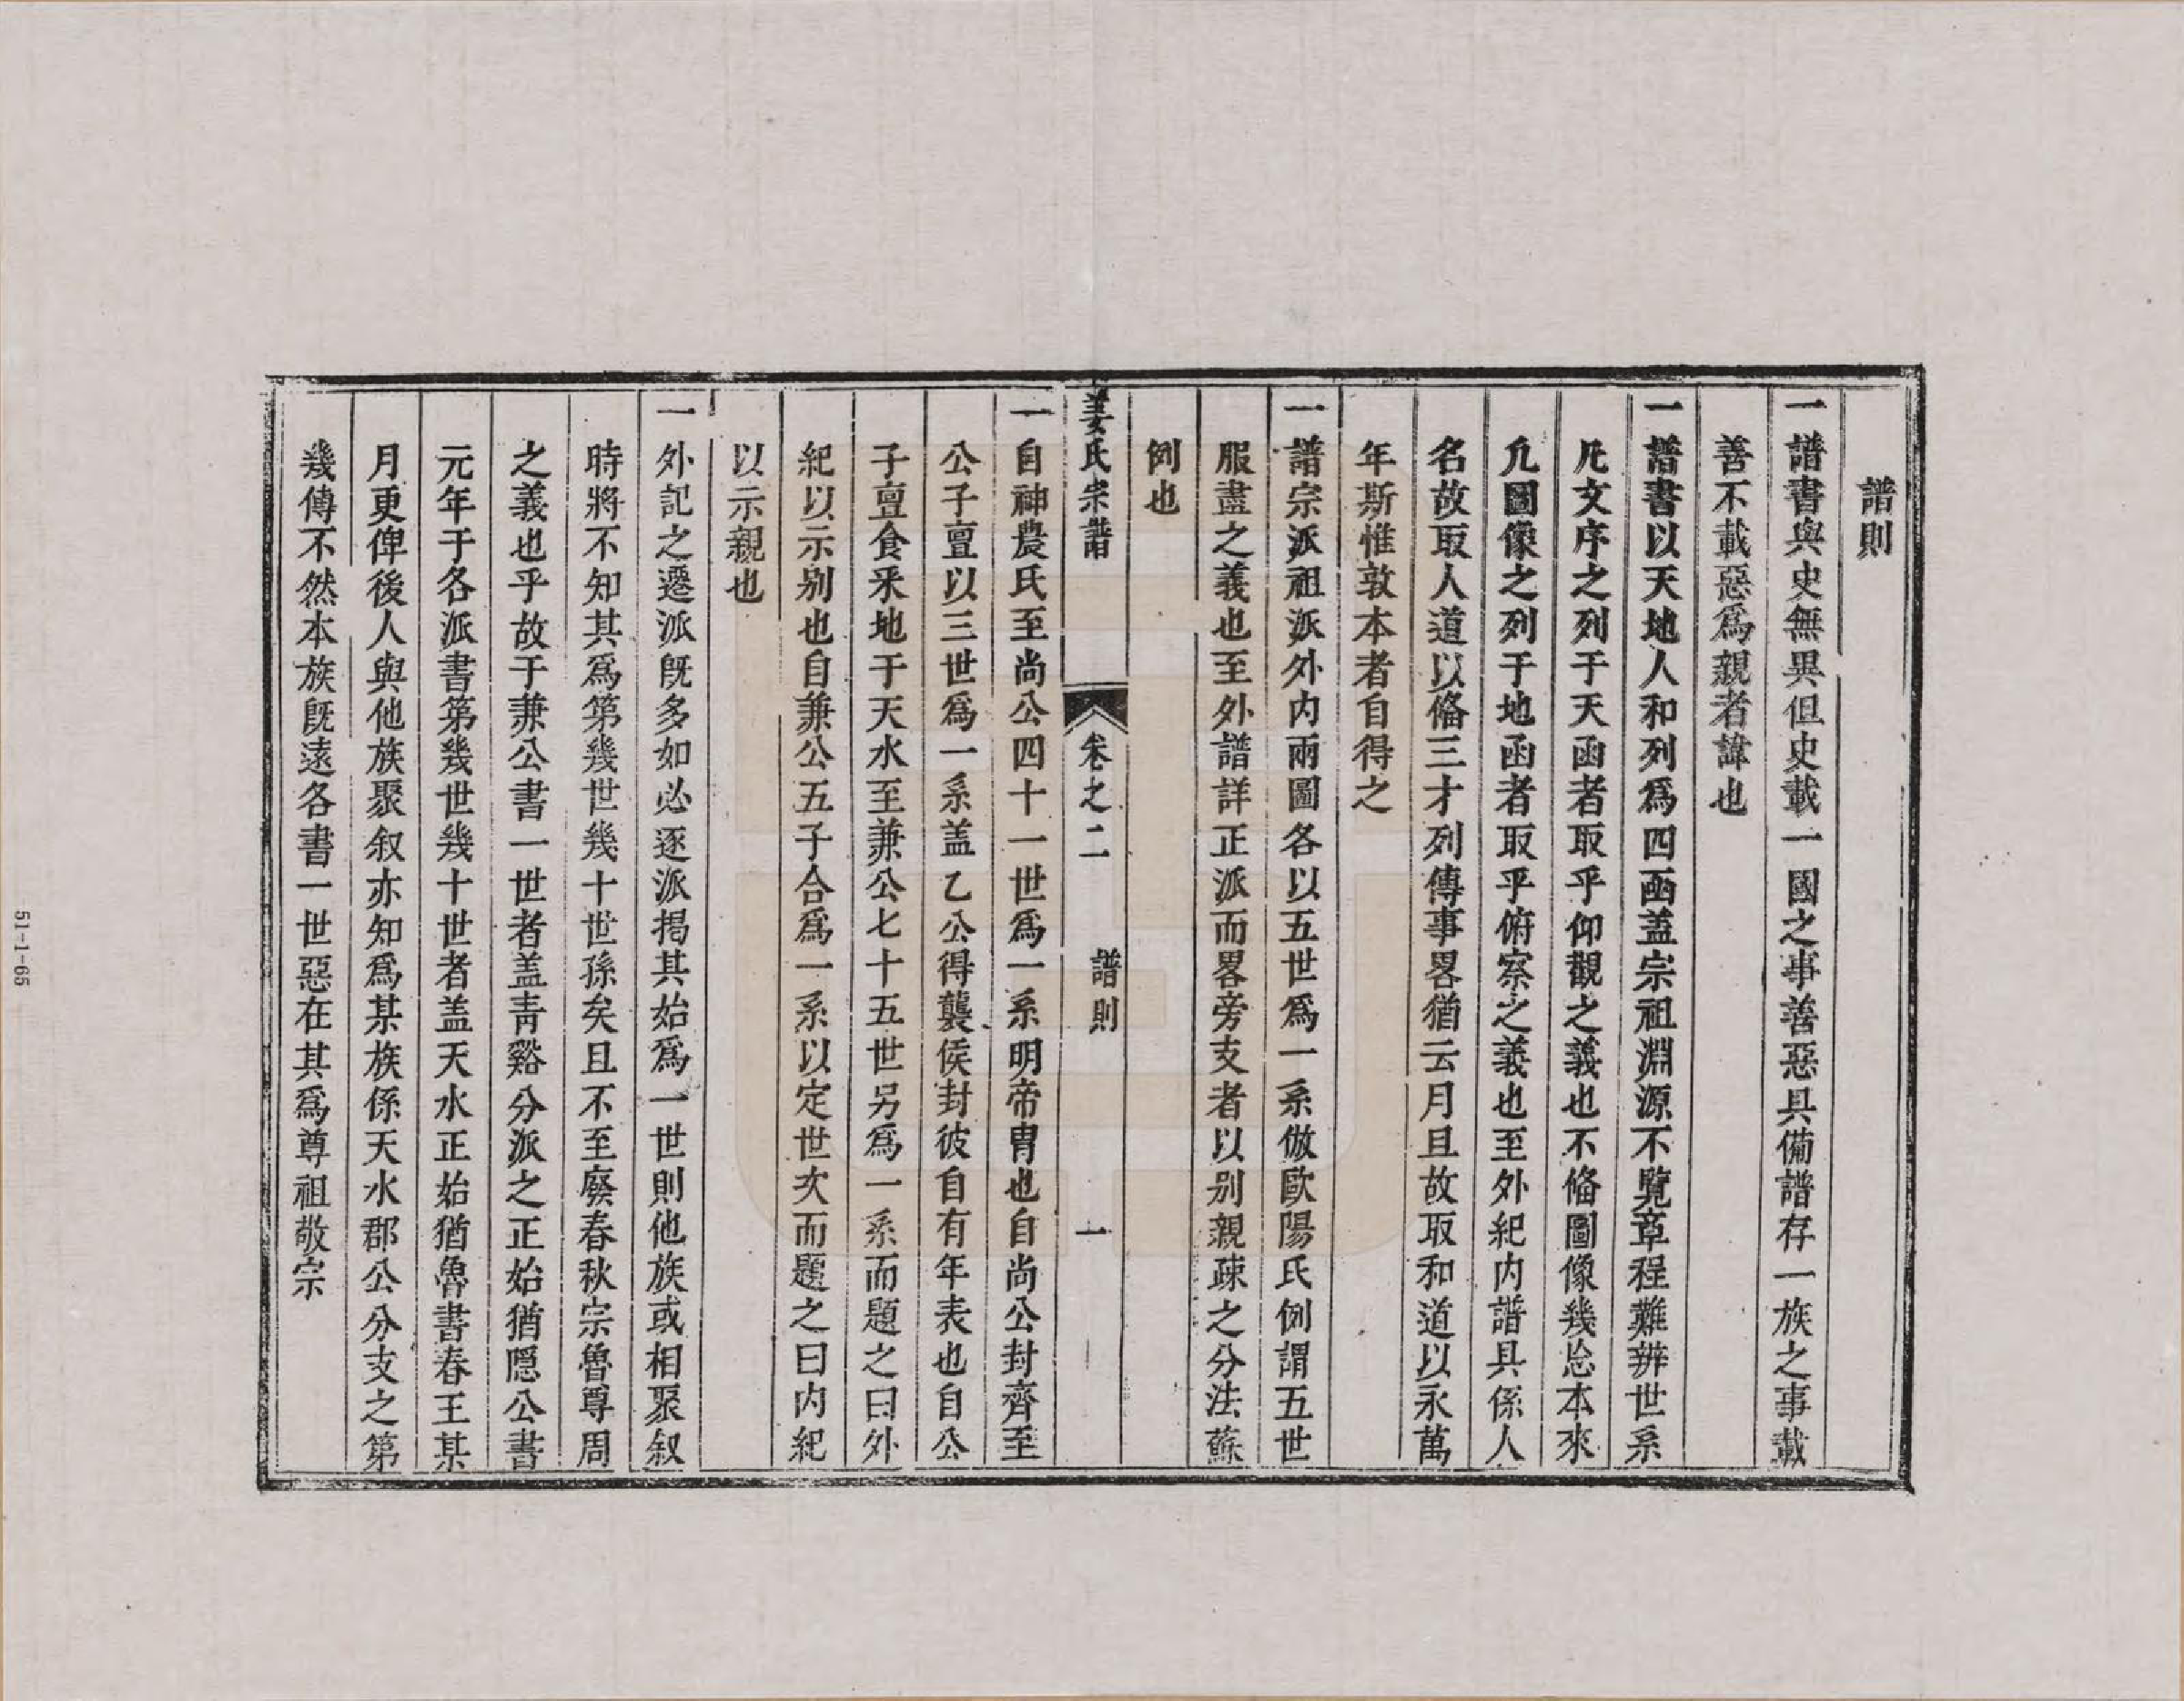 譜則
一譜書與史無異但史載一國之事善惡具備譜存一族之事載
善不載惡爲親者諱也
一譜書以天地人和列爲四函盖宗祖淵源不覽章程難辨世系
凡文序之列于天函者取乎仰觀之義也不俻圖像幾忘本來
凡圖像之列于地函者取乎俯察之義也至外紀内譜具係人
名故取人道以俻三才列傳事畧猶云月且故取和道以永萬
年斯惟敦本者自得之
一譜宗派祖派外内兩圖各以五世爲一系倣歐陽氏例謂五世
服盡之義也至外譜詳正派而畧旁支者以别親疎之分法蘇
例也
姜氏宗譜 卷之二 譜則 一
一自神農氏至尚公四十一世爲一系明帝胄也自尚公封齊至
公子亶以三世爲一系盖乙公得襲侯封彼自有年表也自公
子亶食釆地于天水至兼公七十五世另爲一系而題之曰外
紀以示别也自兼公五子合爲一系以定世次而題之曰内紀
以示親也
一外記之遷派旣多如必逐派揭其始爲一世則他族或相聚叙
時將不知其爲第幾世幾十世孫矣且不至廢春秋宗魯尊周
之義也乎故于兼公書一世者盖靑谿分派之正始猶隠公書
元年于各派書第幾世幾十世者盖天水正始猶魯書春王某
月更俾後人與他族聚叙亦知爲某族係天水郡公分支之第
幾傳不然本族旣遠各書一世惡在其爲尊祖敬宗
51-1-65